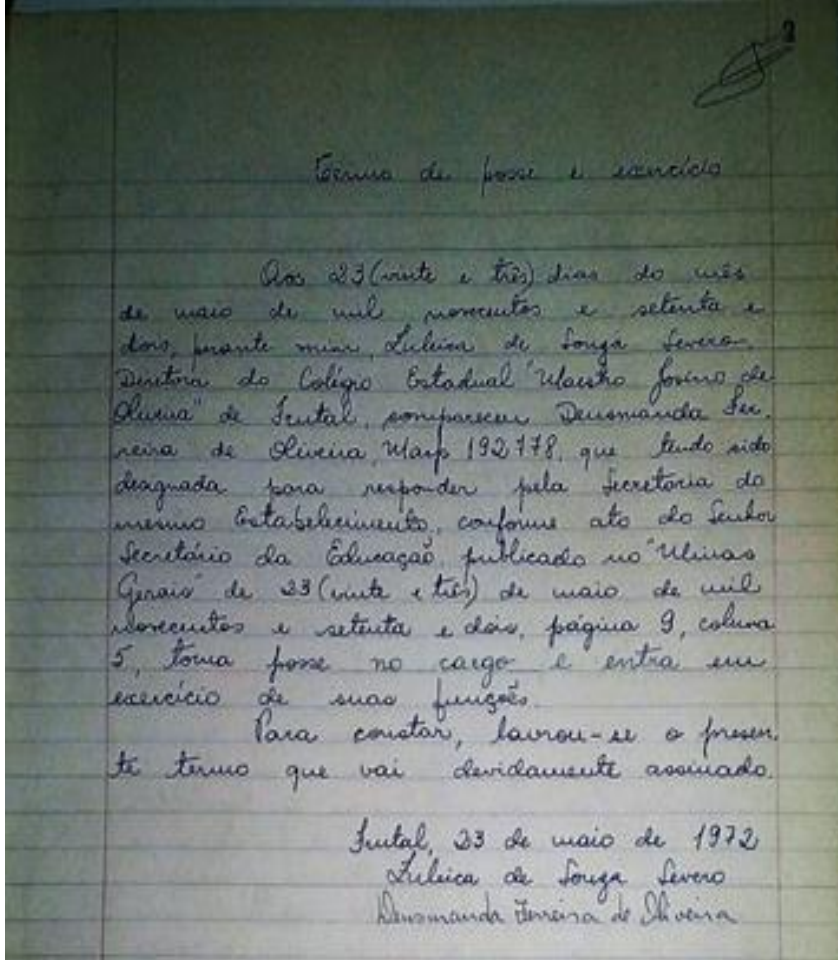 Termo de posse e exercício
Aos 23 (vinte e três) dias do mês
de maio de mil novecentos e setenta e
dois, perante mim, Zuleica de Souza Severo,
Diretora do Colégio Estadual "Maestro Josino de
Oliveira" de Frutal, compareceu Deusmanda Fer-
reira de Oliveira, Masp 192778, que tendo sido
designada para responder pela Secretaria do
mesmo Estabelecimento, conforme ato do Senhor
Secretário da Educação, publicado no "Minas
Gerais" de 23 (vinte e três) de maio de mil
novecentos e setenta e dois, página 9, coluna
5, toma posse no cargo e entra em
exercício de suas funções.
Para constar, lavrou-se o presen-
te termo que vai devidamente assinado.
Frutal, 23 de maio de 1972
Zuleica de Souza Severo
Deusmanda Ferreira de Oliveira